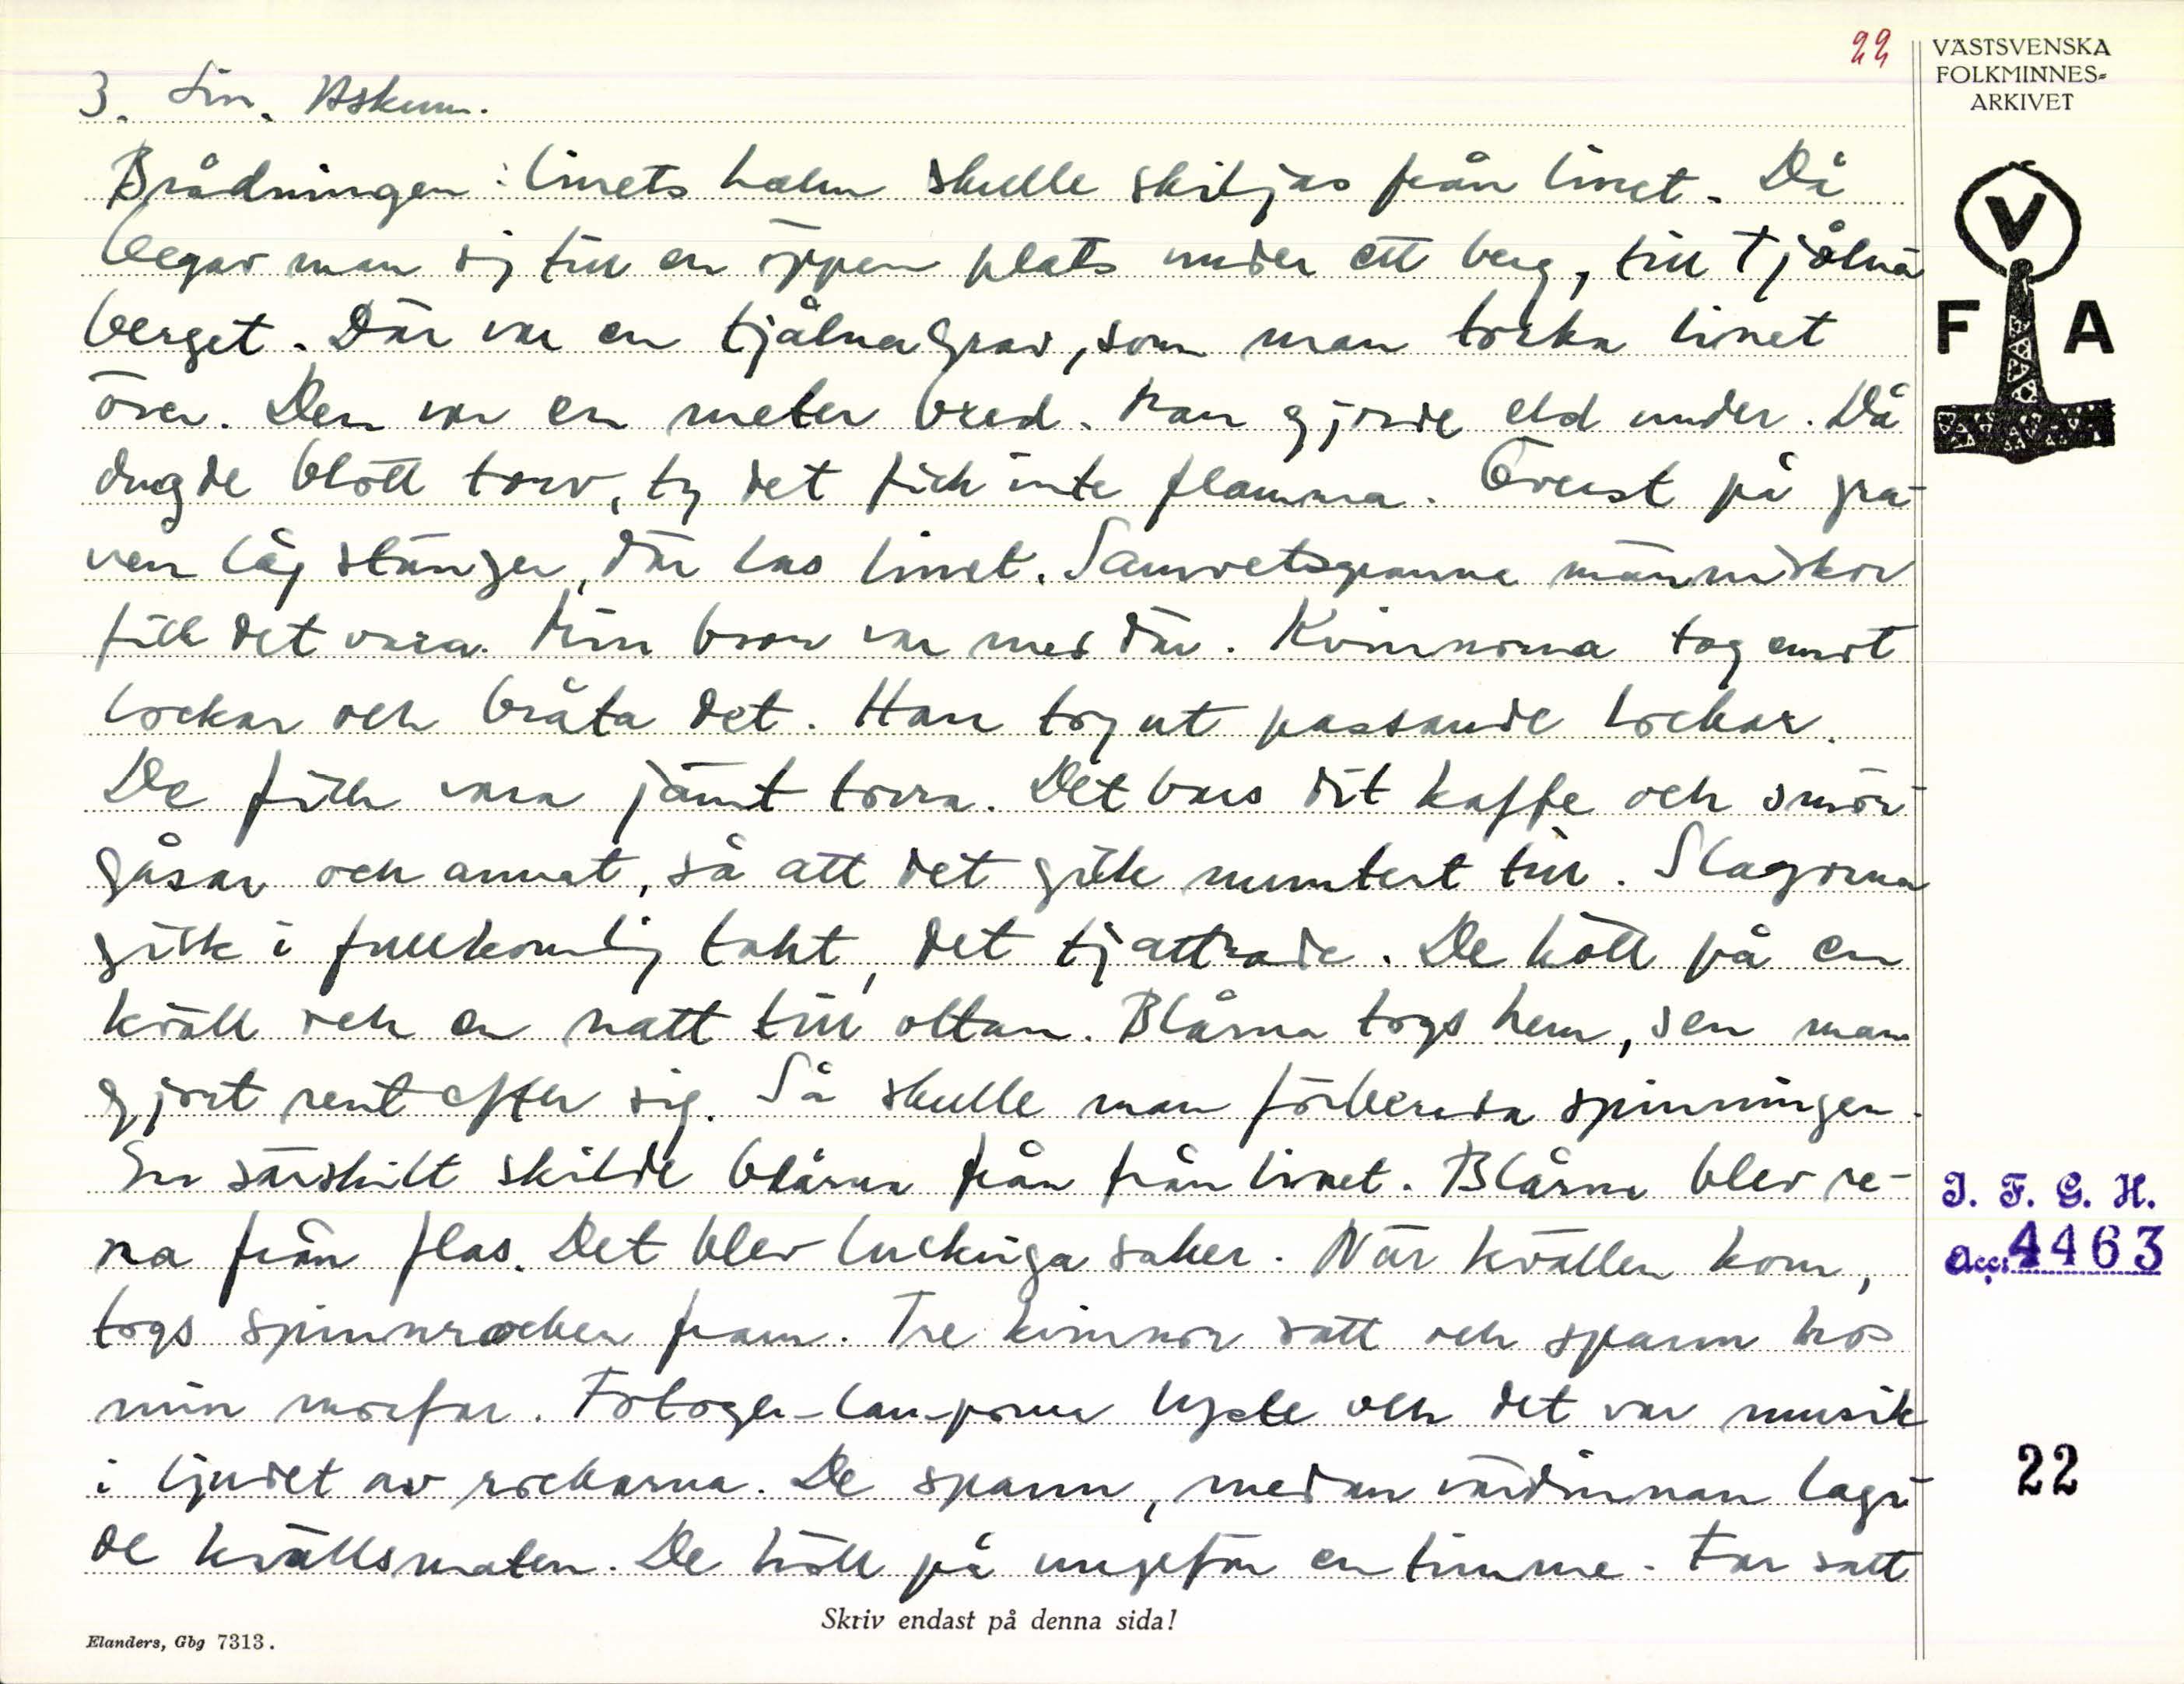 22
VÄSTSVENSKA
FOLKMINNES=
ARKIVET
3. Lin. Askum.
Brådningen: linets halm skulle skiljas från linet. Då
begav man sig till en öppen plats under ett berg, till Tjålna
berget. Där var en tjålnagrav, som man torka linet
över. Den var en meter bred. Man gjorde eld under. Då
dugde blött torv, ty det fick inte flamma. Överst på gra-
ven låg stänger, där las linet. Samvetsgranna människor
fick det vara. Min bror var med där. Kvinnorna tog emot
lockar och bråta det. Han tog ut passande lockar.
De fick vara jämt torra. Det bars dit kaffe och smör-
gåsar och annat, så att det gick muntert till. Slagorna
gick i fullkomlig takt, det tjattrade. De höll på en
kväll och en natt till ottan. Blårna togs hem, sen man
gjort rent efter sig. Så skulle man förbereda spinningen.
En särskilt skilde blårna från från linet. Blårna blev re-
na från flas. Det blev luckiga saker. När kvällen kom,
togs spinnrocken fram. Tre kvinnor satt och spann hos
min morfar. Fotogen-lamporna lyste och det var musik
i ljudet av rockarna. De spann, medan värdinnan laga-
de kvällsmaten. De höll på ungefär en timme. Far satt
V
F A
I. F. G. H.
Acc. 4463
22
Skriv endast på denna sida!
Elanders, Gbg 7313.